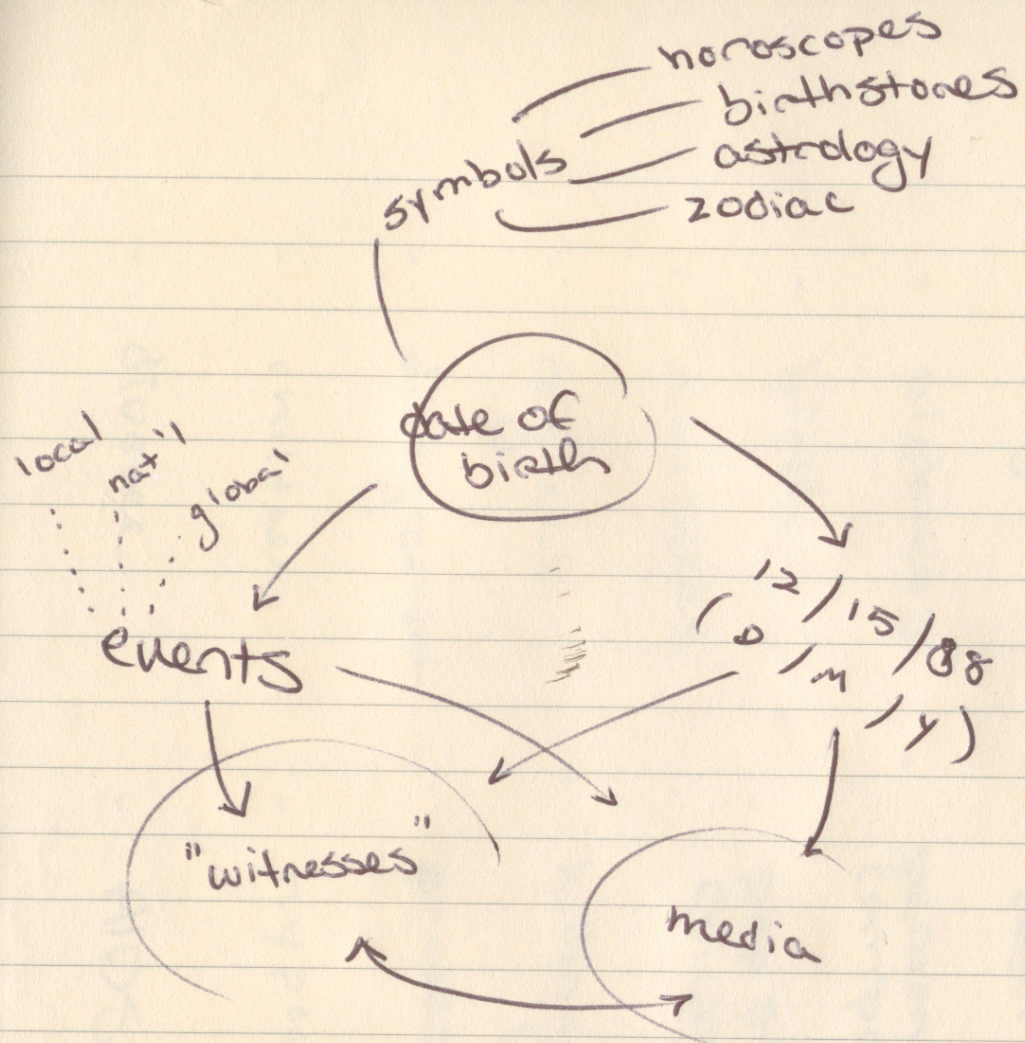 horoscopes
birthstones
astrology
zodiac
symbols
date of
birth
local
nat'l
global
events
12/15/88
(D/M/Y)
"witnesses"
media